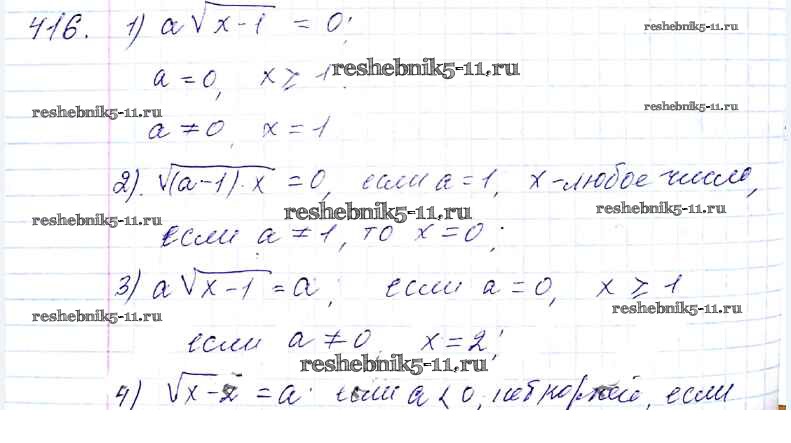 416. 1) a√(x-1) = 0;
reshebnik5-11.ru
a = 0, x ⩾ 1.
reshebnik5-11.ru
reshebnik5-11.ru
reshebnik5-11.ru
a ≠ 0, x = 1
2). √((a-1)·x) = 0, если a = 1, x - любое число,
reshebnik5-11.ru
reshebnik5-11.ru
reshebnik5-11.ru
если a ≠ 1, то x = 0;
3) a√(x-1) = a; если a = 0, x ⩾ 1
reshebnik5-11.ru
reshebnik5-11.ru
если a ≠ 0, x = 2;
reshebnik5-11.ru
4) √(x-2) = a. если a < 0, нет корней, если